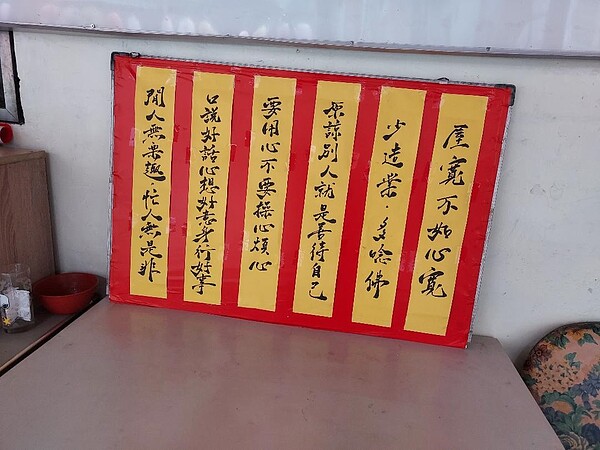 屋寬不如心寬
少造業·多唸佛
原諒別人就是善待自己
要用心不要操心煩心
口說好話心想好意身行好事
閒人無樂趣·忙人無是非